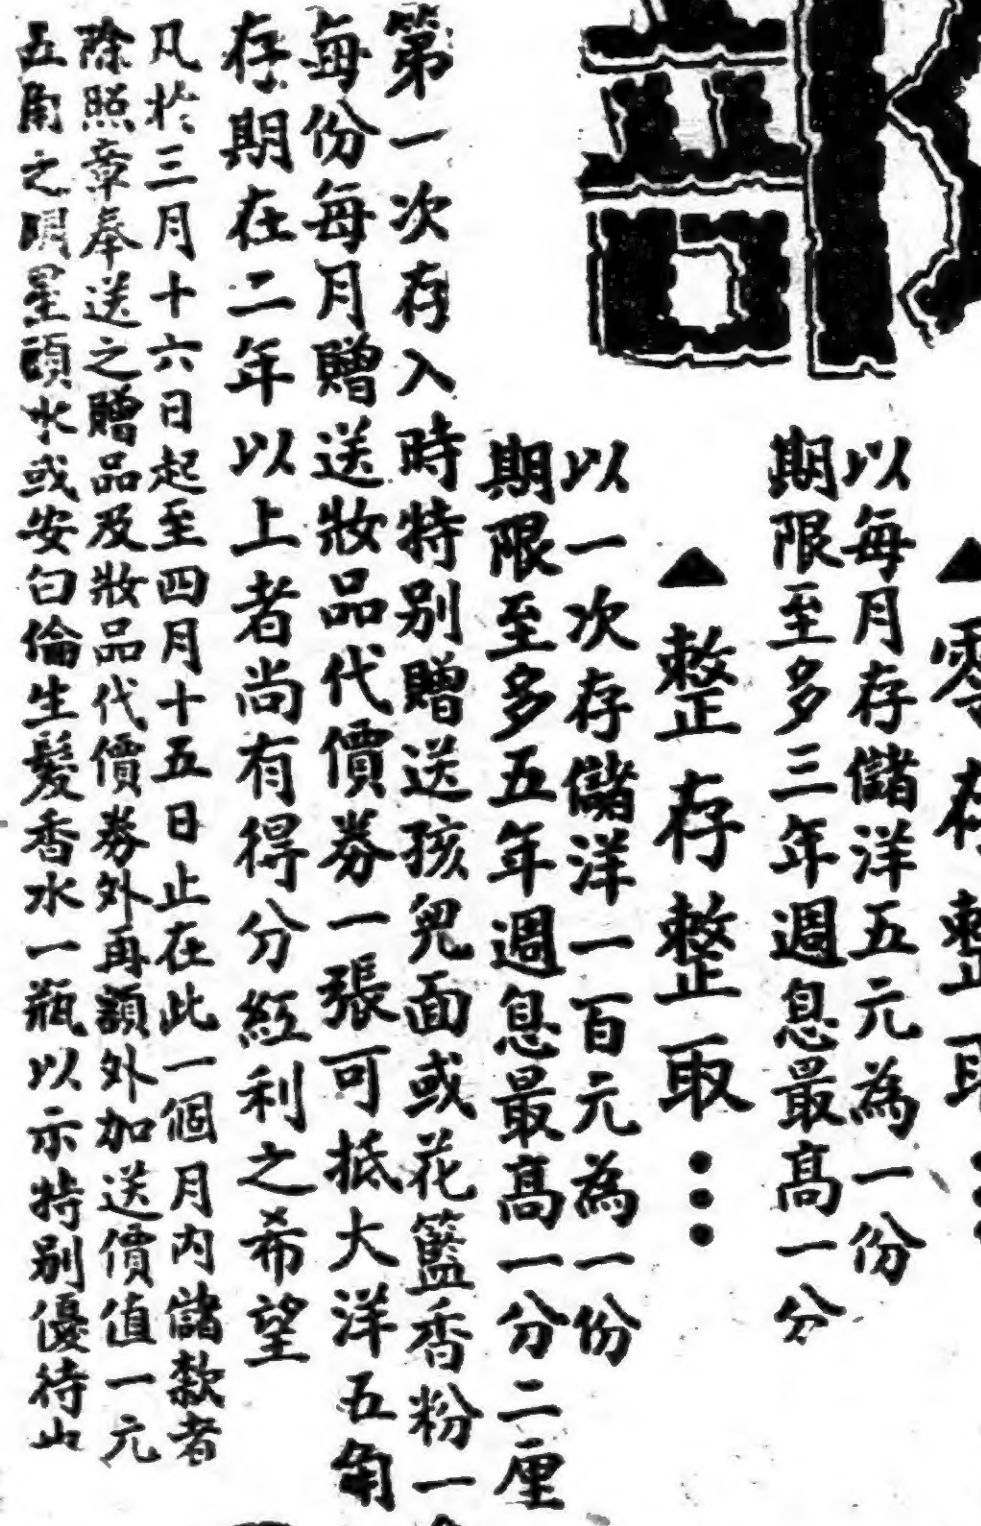 零存整取
以每月存儲洋五元為一份
期限至多三年週息最高一分
▲整存整取…
以一次存儲洋一百元為一份
期限至多五年週息最高一分二厘
第一次存入時特别贈送孩兒面或花籃香粉一
每份每月贈送妝品代價券一張可抵大洋五角
存期在二年以上者尚有得分紅利之希望
凡於三月十六日起至四月十五日止在此一個月內儲款者
除照章奉送之贈品及妝品代價券外再額外加送價值一元
五角之明星頭水或安白倫生髮香水一瓶以示特别優待